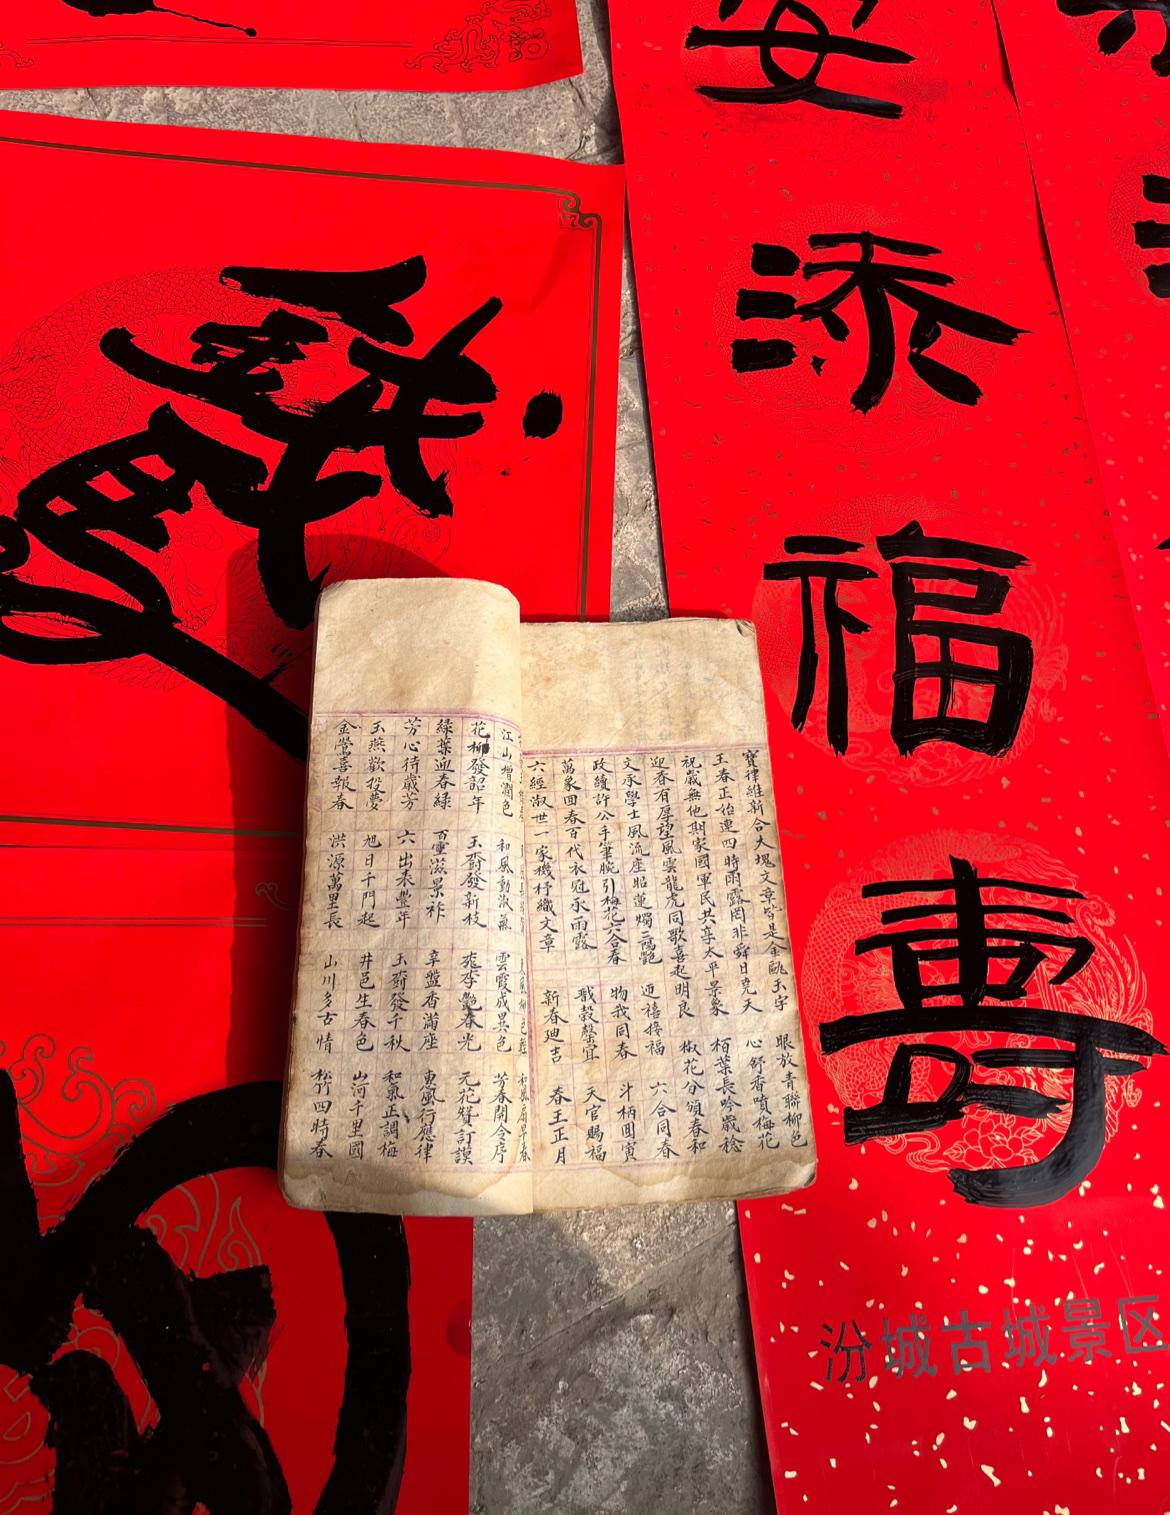 安添福壽
汾城古城景区
寶律維新合大塊文章皆是金甌玉宇
眼放青聯柳色
王春正治連四時雨露罔非舜日堯天
心舒香噴梅花
祝歲無他期家國軍民共享太平景象
栢葉長吟歲稔
迎春有厚望風雲龍虎同歌喜起明良
椒花分頒春和
文承學士風流座昭蓮燭三陽艷
迊禧接福
六合同春
政續許公手筆腕引梅花六合春
物我同春
斗柄囬寅
萬象囬春百代衣冠承雨露
戩穀罄宜
天官賜福
六經淑世一家機杼織文章
新春廸吉
春王正月
江山增潤色
和風動淑氣
雲霞成異色
芳春開令序
花柳發韶年
玉發新枝
桃李艷春光
元花贊訂謨
綠葉迎春綠
百靈滋景祚
辛盤香滿座
東風行應律
芳心待歲芳
六出兆豐年
玉發千秋
和氣正調梅
玉燕歡投夢
旭日千門起
井邑生春色
山河千里國
金鶯喜報春
洪源萬里長
山川多古情
松竹四時春